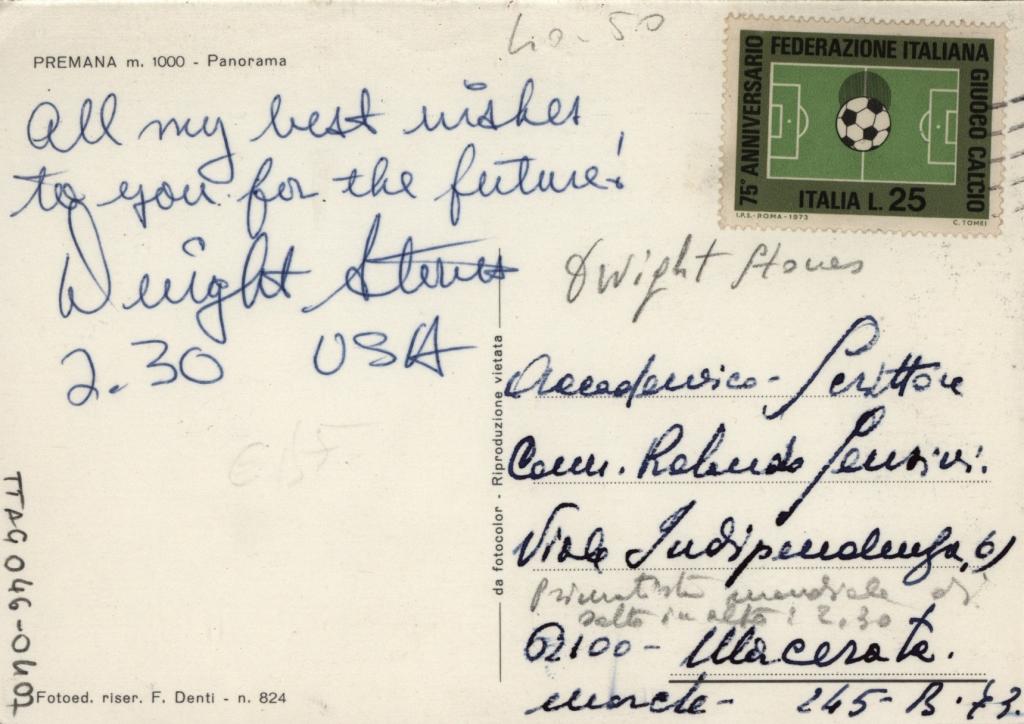 Lo. 50
PREMANA m. 1000 - Panorama
All my best wishes
to you for the future!
Dwight Stones
2.30 USA
75° ANNIVERSARIO
FEDERAZIONE ITALIANA
GIUOCO CALCIO
ITALIA L. 25
I.P.S.-ROMA-1973
C. TOMEI
Dwight Stones
Accademico - Scrittore
Comm. Rolando Sensini.
Viale Indipendenza, 61
Primatista mondiale di
salto in alto: 2,30
62100 - Macerata.
Marche - 245-B-73.
da fotocolor - Riproduzione vietata
TTAG 046-040
Fotoed. riser. F. Denti - n. 824